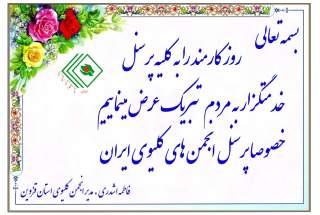 بسمه تعالی
روز کارمند را به کلیه پرسنل
خدمتگزار به مردم تبریک عرض مینماییم
خصوصا پرسنل انجمن های کلیوی ایران
فاطمه اشدری ، مدیر انجمن کلیوی استان قزوین